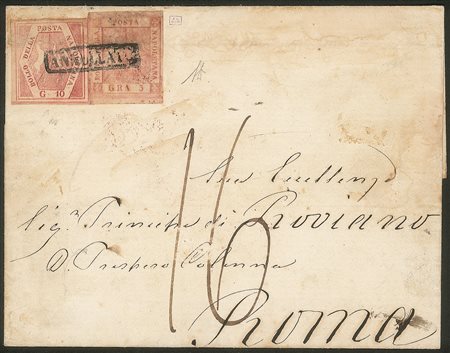 BOLLO DELLA POSTA NAPOLETANA
G. 10
POSTA NAPOLETANA
GRA 3
ANNULLATO
16
Sua Eccellenza
Sig.r Principe di Roviano
D. Prospero Colonna
Roma